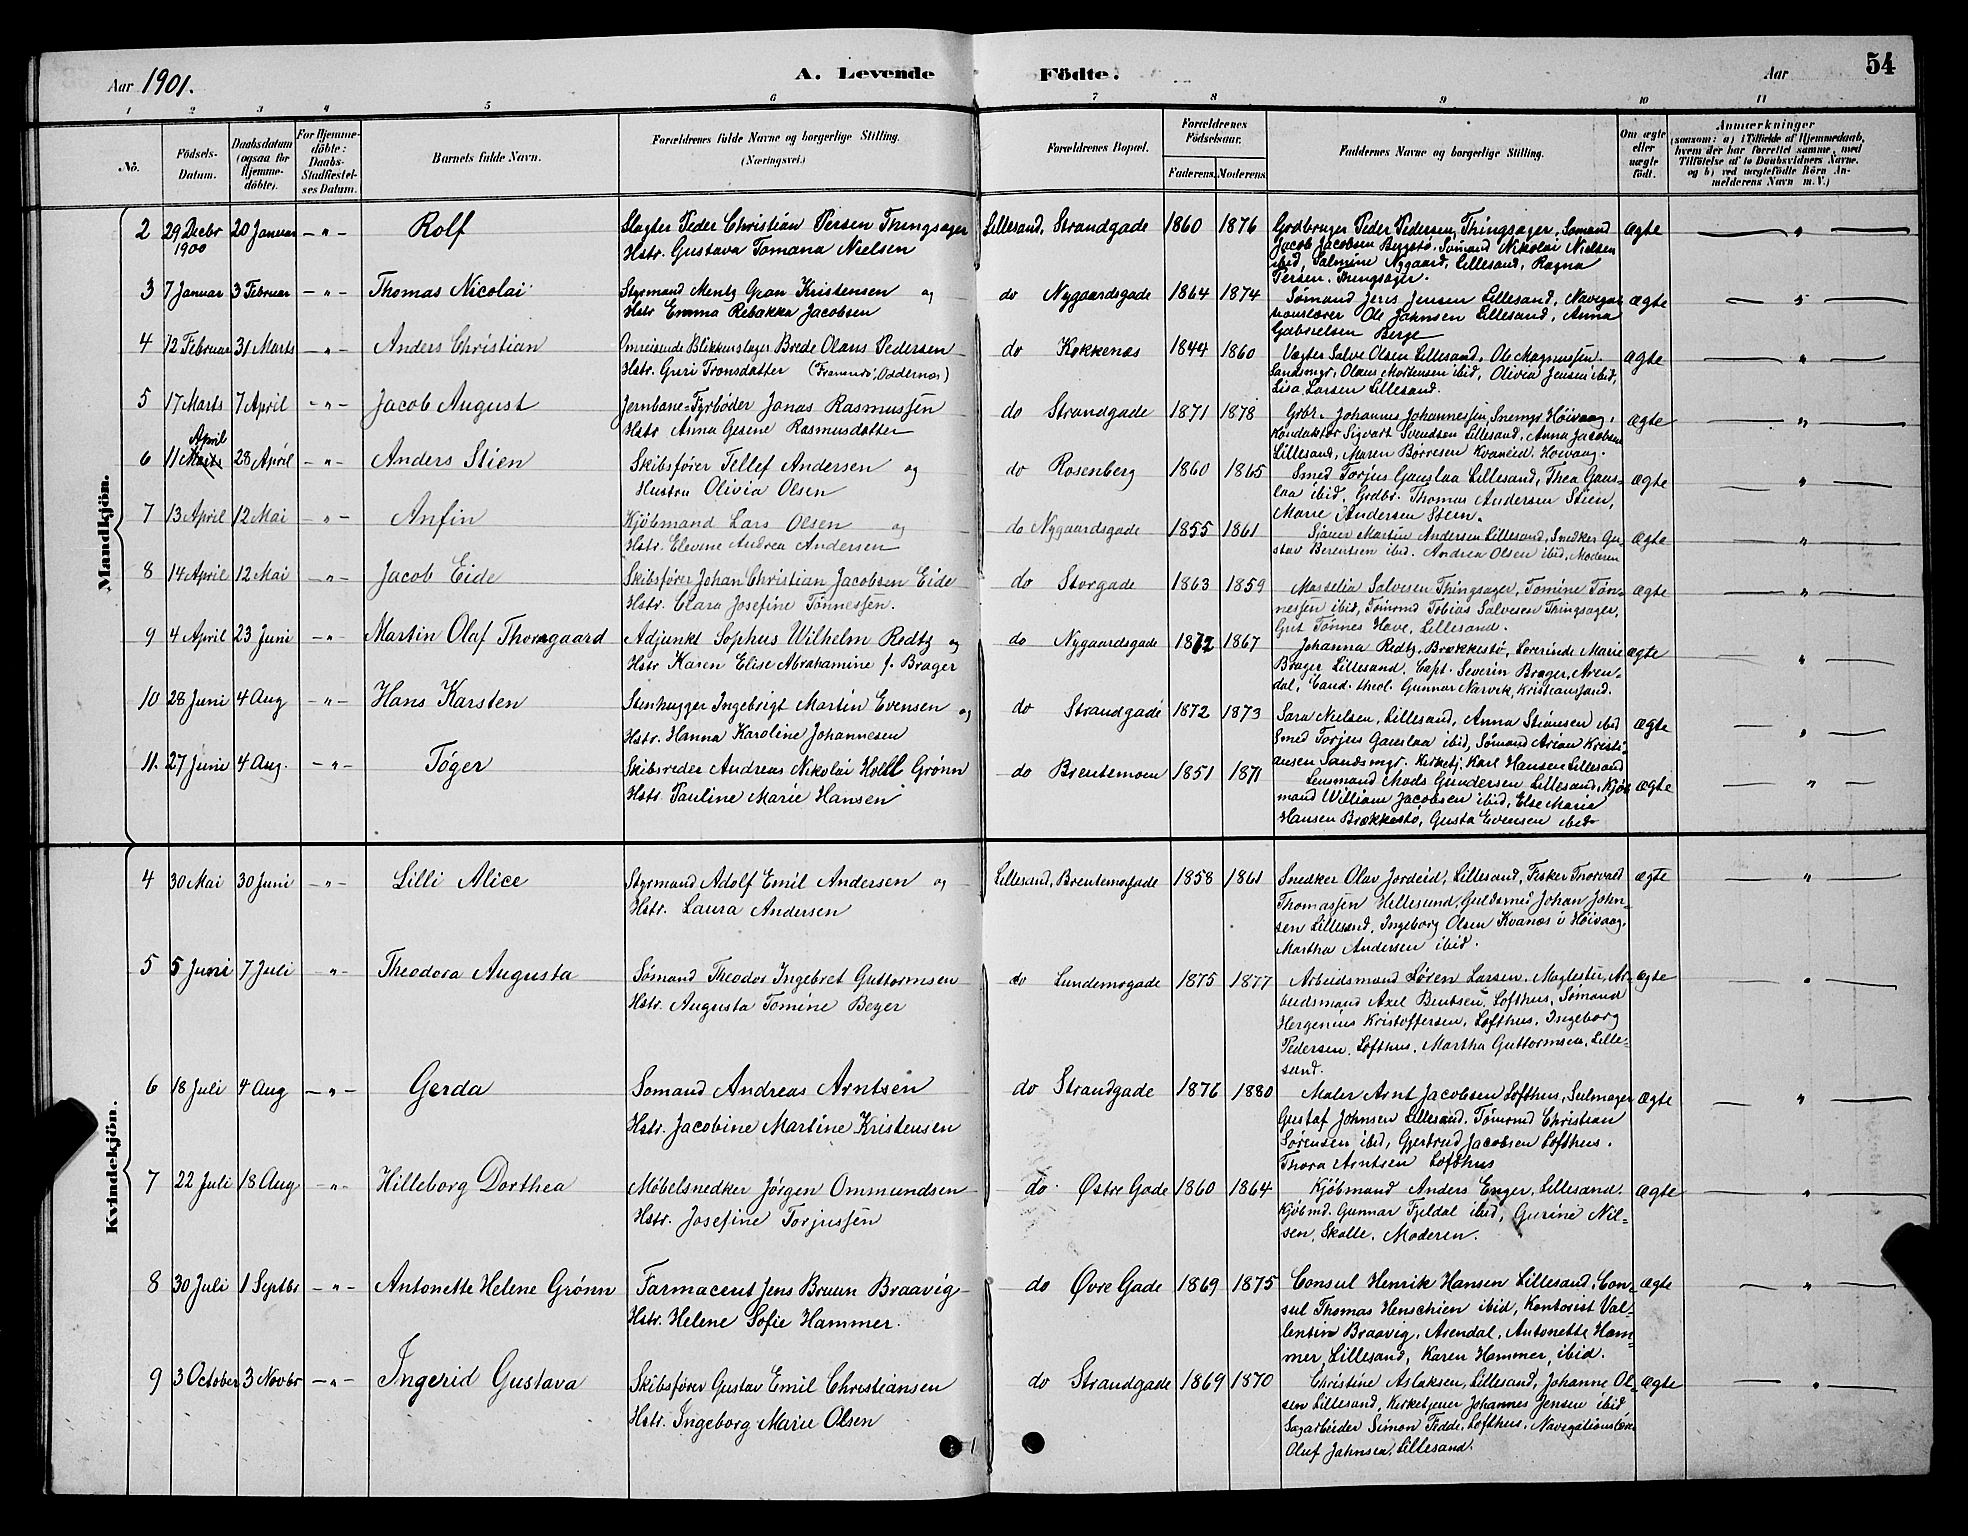 Aar 1901. A. Levende Födte. Aar 54
1 2 3 4 5 6 7 8 9 10 11
No. Födsels-Datum. Daabsdatum (ogsaa for Hjemme-döbte). For Hjemme-döbte: Daabs-Stadfæstel-ses Datum. Barnets fulde Navn. Forældrenes fulde Navne og borgerlige Stilling. (Næringsvei.) Forældrenes Bopæl. Forældrenes Födselsaar. Faderens. Moderens. Faddernes Navne og borgerlige Stilling. Om ægte eller uægte födt. Anmærkninger (saasom: a) i Tilfælde af Hjemmedaab, hvem der har forrettet samme, med Tilföielse af to Daabsvidners Navne, og b) ved uægtefödte Börn An-melderens Navn m. V.)
Mandkjön.
2 29 Decbr 1900 20 Januar — " — Rolf Slagter Peder Christian Persen Thingsager Lillesand, Strandgade 1860 1876 Grdbruger Peder Pedersen Thingsager, Sømand Ægte
Hstr. Gustava Tomana Nielsen Jacob Jacobsen Beggstø, Sømand Nikolai Nielsen
ibid, Salmine Nygaard, Lillesand, Ragna
Persen Thingsager.
3 7 Januar 3 Februar — " — Thomas Nicolai Styrmand Mentz Gran Kristensen og do Nygaardsgade 1864 1874 Sømand Jens Jensen Lillesand, Naviga- Ægte
Hstr Emma Rebakka Jacobsen tionslærer Ole Jahnsen Lillesand, Anna
Gabrielsen Berge
4 12 Februar 31 Marts — " — Anders Christian Omreisende Blikkenslager Brede Olaus Pedersen do Kokkenæs 1844 1860 Vægter Salve Olsen Lillesand, Ole Magnussen Ægte
Hstr. Guri Tronsdatter Sandsmyr, Olaus Mortensen ibid, Olivia Jensen ibid,
Lisa Larsen Lillesand.
5 17 Marts 7 April — " — Jacob August Jernbane-Fyrbøder Jonas Rasmussen do Strandgade 1871 1878 Grbr. Johannes Johannessen Snemyr Höivaag, Ægte
Hstr Anna Gesine Rasmusdatter Konduktør Sigvart Svendsen Lillesand, Anna Jacobsen
Lillesand, Maren Børresen Kvaneid, Höivaag.
6 11 April 28 April — " — Anders Stien Skibsfører Tellef Andersen og do Rosenberg 1860 1865 Smed Torjus Gauslaa Lillesand, Thea Gaus- Ægte
Hustru Olivia Olsen laa ibid, Grdbr. Thomas Andersen Stien,
Marie Andersen Stien.
7 13 April 12 Mai — " — Anfin Kjöbmand Lars Olsen og do Nygaardsgade 1855 1861 Martin Andersen Lillesand, Snedker Gu- Ægte
Hstr. Elevine Andrea Andersen stav Berentsen ibid. Andrea Olsen ibid, Moderen
8 14 April 12 Mai — " — Jacob Eide Skibsfører Johan Christian Jacobsen Eide do Storgade 1863 1859 Salvesen Thingsager, Tomine Tön- Ægte
Hstr. Clara Josefine Tönnessen. nessen ibid, Tømrmd Tobias Salvesen Thingsager,
Gut Tönnes Have, Lillesand.
9 4 April 23 Juni — " — Martin Olaf Thorngaard Adjunkt Sophus Wilhelm Redtz og do Nygaardsgade 1872 1867 Johanna Redtz, Brækkestø, Lovrinde Marie Ægte
Hstr Karen Elise Abrahamine f. Brager Brager, Lillesand, Capt. Severin Brager, Aren-
dal, Cand. theol. Gunnar Narvik, Kristiansand.
10 28 Juni 4 Aug — " — Hans Karsten Stenhugger Ingebrigt Martin Evensen og do Strandgade 1872 1873 Sara Nielsen, Lillesand, Anna ibid Ægte
Hstr. Hanna Karoline Johannesen Smed Torjus Gauslaa ibid, Sømand Kristi-
ansen Sandsmyr. Kirketj. Karl Hansen Lillesand
11. 27 Juni 4 Aug. — " — Töger Skibsreder Andreas Nikolai Holll Grønn do Brentemoen 1851 1871 Lensmand Mads Gundersen Lillesand, Kjøb- Ægte
Hstr. Pauline Marie Hansen mand William Jacobsen ibid, Else Marie
Hansen Brækkestø, Gusta Evensen ibid
Kvindekjön.
4 30 Mai 30 Juni — " — Lilli Alice Styrmand Adolf Emil Andersen og Lillesand, Brentemogade 1858 1861 Snedker Olav Jordeid, Lillesand, Fisker Thorvald Ægte
Hstr. Laura Andersen Thomassen Hellesund, Guldsmed Johan John-
sen Lillesand, Ingeborg Olsen Kvanæs i Höivaag,
Martha Andersen ibid.
5 5 Juni 7 Juli " Theodora Augusta Sømand Theodor Ingebret Guttormsen do Lundemogade 1875 1877 Arbeidsmand Søren Larsen, Møglestu, Ar- Ægte
Hstr. Augusta Tomine Beyer beidsmand Axel Bentsen, Lofthus, Sømand
Hergenius Kristoffersen, Lofthus, Ingeborg
Pedersen, Lofthus, Martha Guttormsen, Lille-
sand.
6 18 Juli 4 Aug — " — Gerda Sømand Andreas Arntsen do Strandgade 1876 1880 Maler Arnt Jacobsen Lofthus, Seilmager Ægte
Hstr. Jacobine Martine Kristensen Gustaf Johnsen Lillesand, Tømrmd Christian
Sørensen ibid, Gjertrud Jacobsen Lofthus.
Thora Arntsen Lofthus
7 22 Juli 18 Aug — " — Hilleborg Dorthea Møbelsnedker Jörgen Ommundsen do Østre Gade 1860 1864 Kjöbmand Anders Enger, Lillesand. Ægte
Hstr. Josefine Torjussen Kjöbmd. Gunnar Fjeldal ibid, Gurine Nil-
sen, Skolle, Moderen.
8 30 Juli 1 Septbr — " — Antonette Helene Grønn Farmaceut Jens Bruun Braavig do Øvre Gade 1869 1875 Consul Henrik Hansen Lillesand, Con- Ægte
Hstr. Helene Sofie Hammer. sul Thomas Henschien ibid, Kontorist Val-
lentin Braavig, Arendal, Antonette Ham-
mer, Lillesand, Karen Hammer, ibid.
9 3 October 3 Novbr — " — Ingerid Gustava Skibsfører Gustav Emil Christiansen do Strandgade 1869 1870 Christine Aslaksen, Lillesand, Johanne Ol- Ægte
Hstr. Ingeborg Marie Olsen sen Lillesand, Kirketjener Johannes Jensen ibid
Sagarbeider Simon Fedde, Lofthus, Navigationslær.
Oluf Jahnsen, Lillesand.